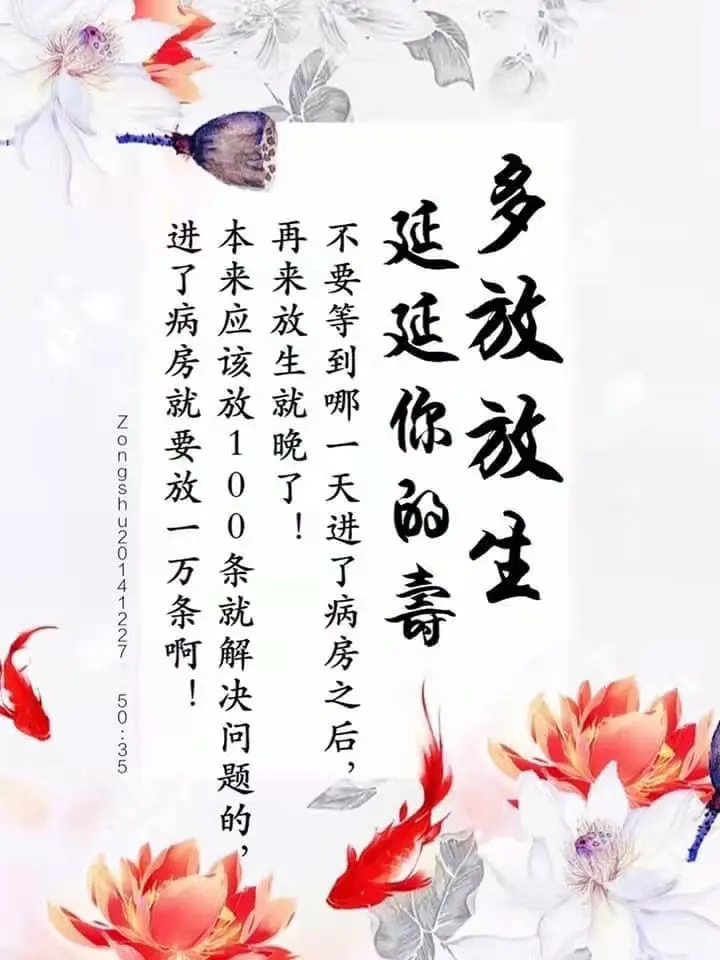 多放放生
延延你的壽
不要等到哪一天进了病房之后，
再来放生就晚了！
本来应该放100条就解决问题的，
进了病房就要放一万条啊！
Zongshu20141227 50:35